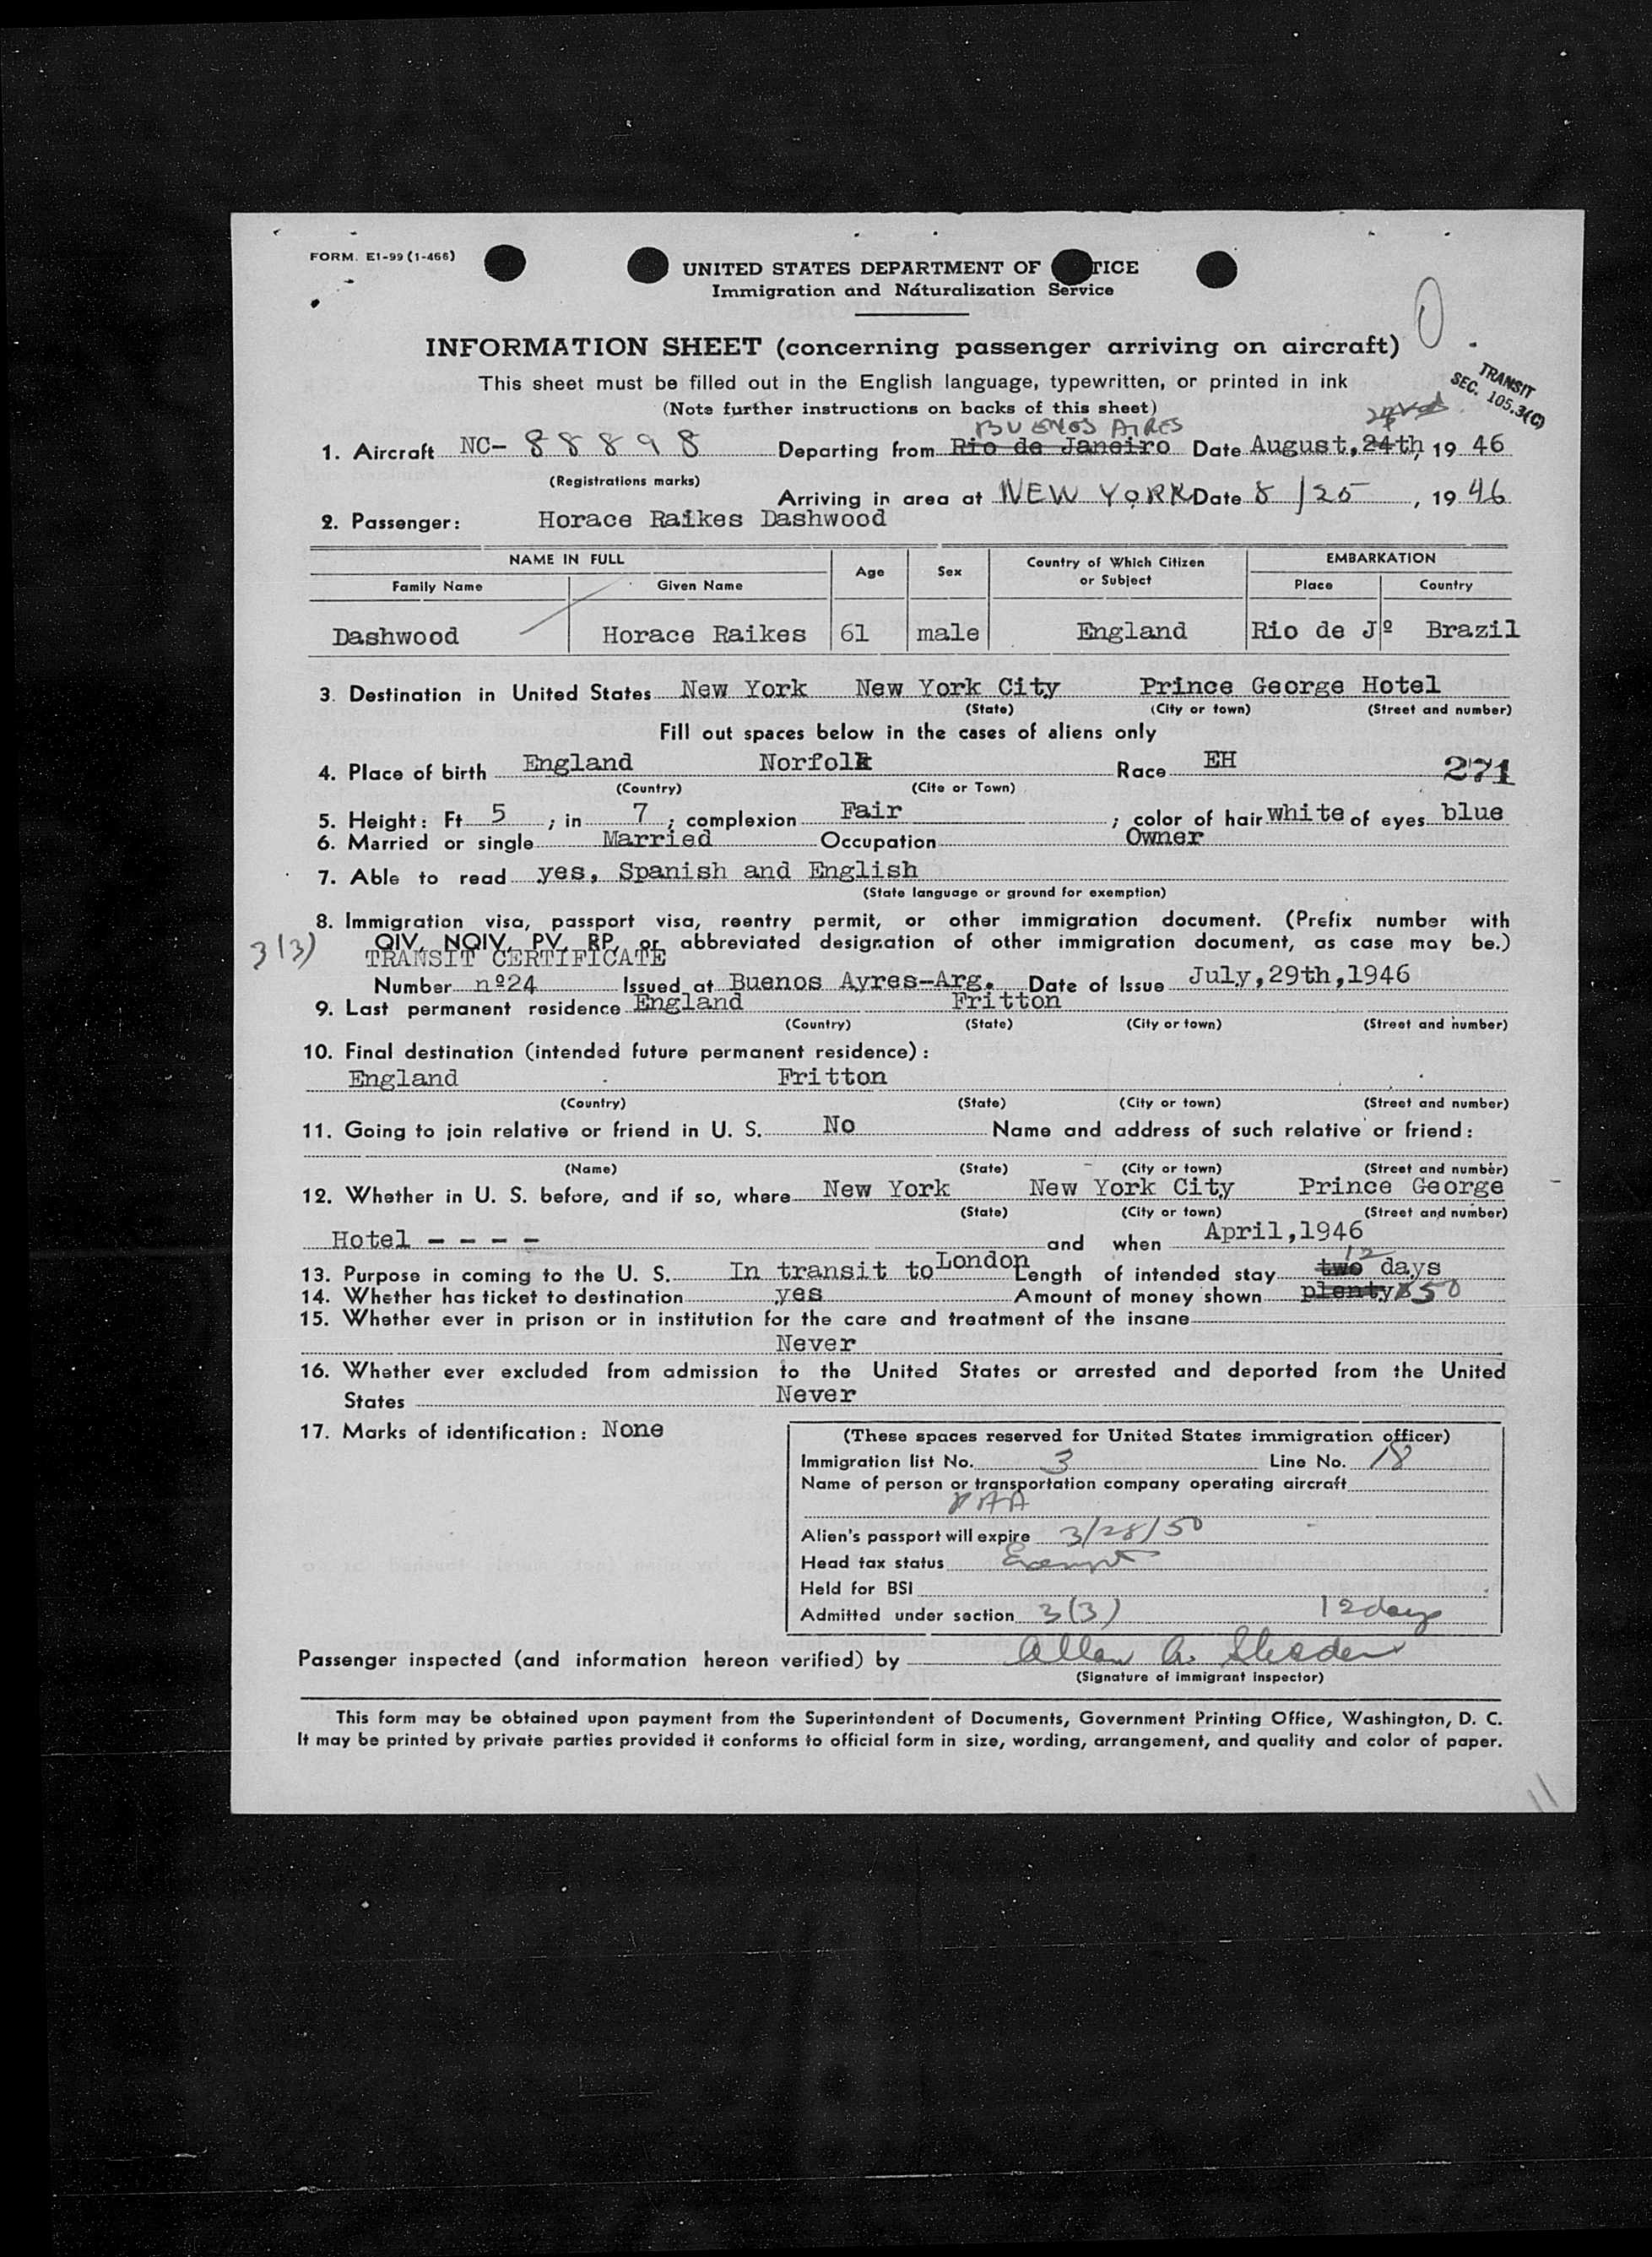 FORM. E1-99 (1-466)
UNITED STATES DEPARTMENT OF TICE
Immigration and Naturalization Service
INFORMATION SHEET (concerning passenger arriving on aircraft)
This sheet must be filled out in the English language, typewritten, or printed in ink
(Note further instructions on backs of this sheet)
TRANSIT
SEC. 105.3(C)
BUENOS AIRES
1. Aircraft NC- 88898 Departing from Rio de Janeiro Date August, 24th, 19 46
(Registrations marks)
Arriving in area at NEW YORK Date 8/25, 19 46
2. Passenger: Horace Raikes Dashwood
NAME IN FULL Age Sex Country of Which Citizen or Subject EMBARKATION
Family Name Given Name Place Country
Dashwood Horace Raikes 61 male England Rio de Jº Brazil
3. Destination in United States New York New York City Prince George Hotel
(State) (City or town) (Street and number)
Fill out spaces below in the cases of aliens only
4. Place of birth England Norfolk Race EH 271
(Country) (Cite or Town)
5. Height: Ft 5 ; in 7 ; complexion Fair ; color of hair white of eyes blue
6. Married or single Married Occupation Owner
7. Able to read yes, Spanish and English
(State language or ground for exemption)
8. Immigration visa, passport visa, reentry permit, or other immigration document. (Prefix number with
3(3) QIV, NQIV, PV, RP, or abbreviated designation of other immigration document, as case may be.)
TRANSIT CERTIFICATE
Number nº24 Issued at Buenos Ayres-Arg. Date of Issue July,29th,1946
9. Last permanent residence England Fritton
(Country) (State) (City or town) (Street and number)
10. Final destination (intended future permanent residence):
England Fritton
(Country) (State) (City or town) (Street and number)
11. Going to join relative or friend in U. S. No Name and address of such relative or friend:
(Name) (State) (City or town) (Street and number)
12. Whether in U. S. before, and if so, where New York New York City Prince George
(State) (City or town) (Street and number)
Hotel - - - - and when April,1946
12
13. Purpose in coming to the U. S. In transit to London Length of intended stay two days
14. Whether has ticket to destination yes Amount of money shown plenty $50
15. Whether ever in prison or in institution for the care and treatment of the insane
Never
16. Whether ever excluded from admission to the United States or arrested and deported from the United
States Never
17. Marks of identification: None
(These spaces reserved for United States immigration officer)
Immigration list No. 3 Line No. 18
Name of person or transportation company operating aircraft
PAA
Alien's passport will expire 3/28/50
Head tax status Exempt
Held for BSI
Admitted under section 3(3) 12 days
Passenger inspected (and information hereon verified) by Allan A.
(Signature of immigrant inspector)
This form may be obtained upon payment from the Superintendent of Documents, Government Printing Office, Washington, D. C.
It may be printed by private parties provided it conforms to official form in size, wording, arrangement, and quality and color of paper.
11